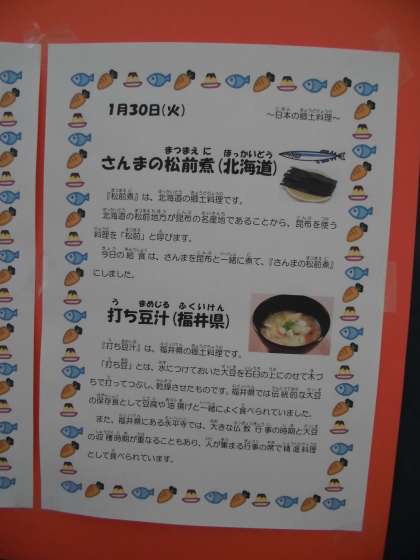 1月30日(火)
～日本の郷土料理～
さんまの松前煮(北海道)
『松前煮』は、北海道の郷土料理です。
北海道の松前地方が昆布の名産地であることから、昆布を使う
料理を「松前」と呼びます。
今日の給食は、さんまを昆布と一緒に煮て、『さんまの松前煮』
にしました。
打ち豆汁(福井県)
『打ち豆汁』は、福井県の郷土料理です。
「打ち豆」とは、水につけておいた大豆を石臼の上にのせて木づ
ちで打ってつぶし、乾燥させたものです。福井県では伝統的な大豆
の保存食として豆腐や油揚げと一緒によく食べられていました。
また、福井県にある永平寺では、大きな仏教行事の時期と大豆
の収穫時期が重なることもあり、人が集まる行事の席で精進料理
として食べられています。